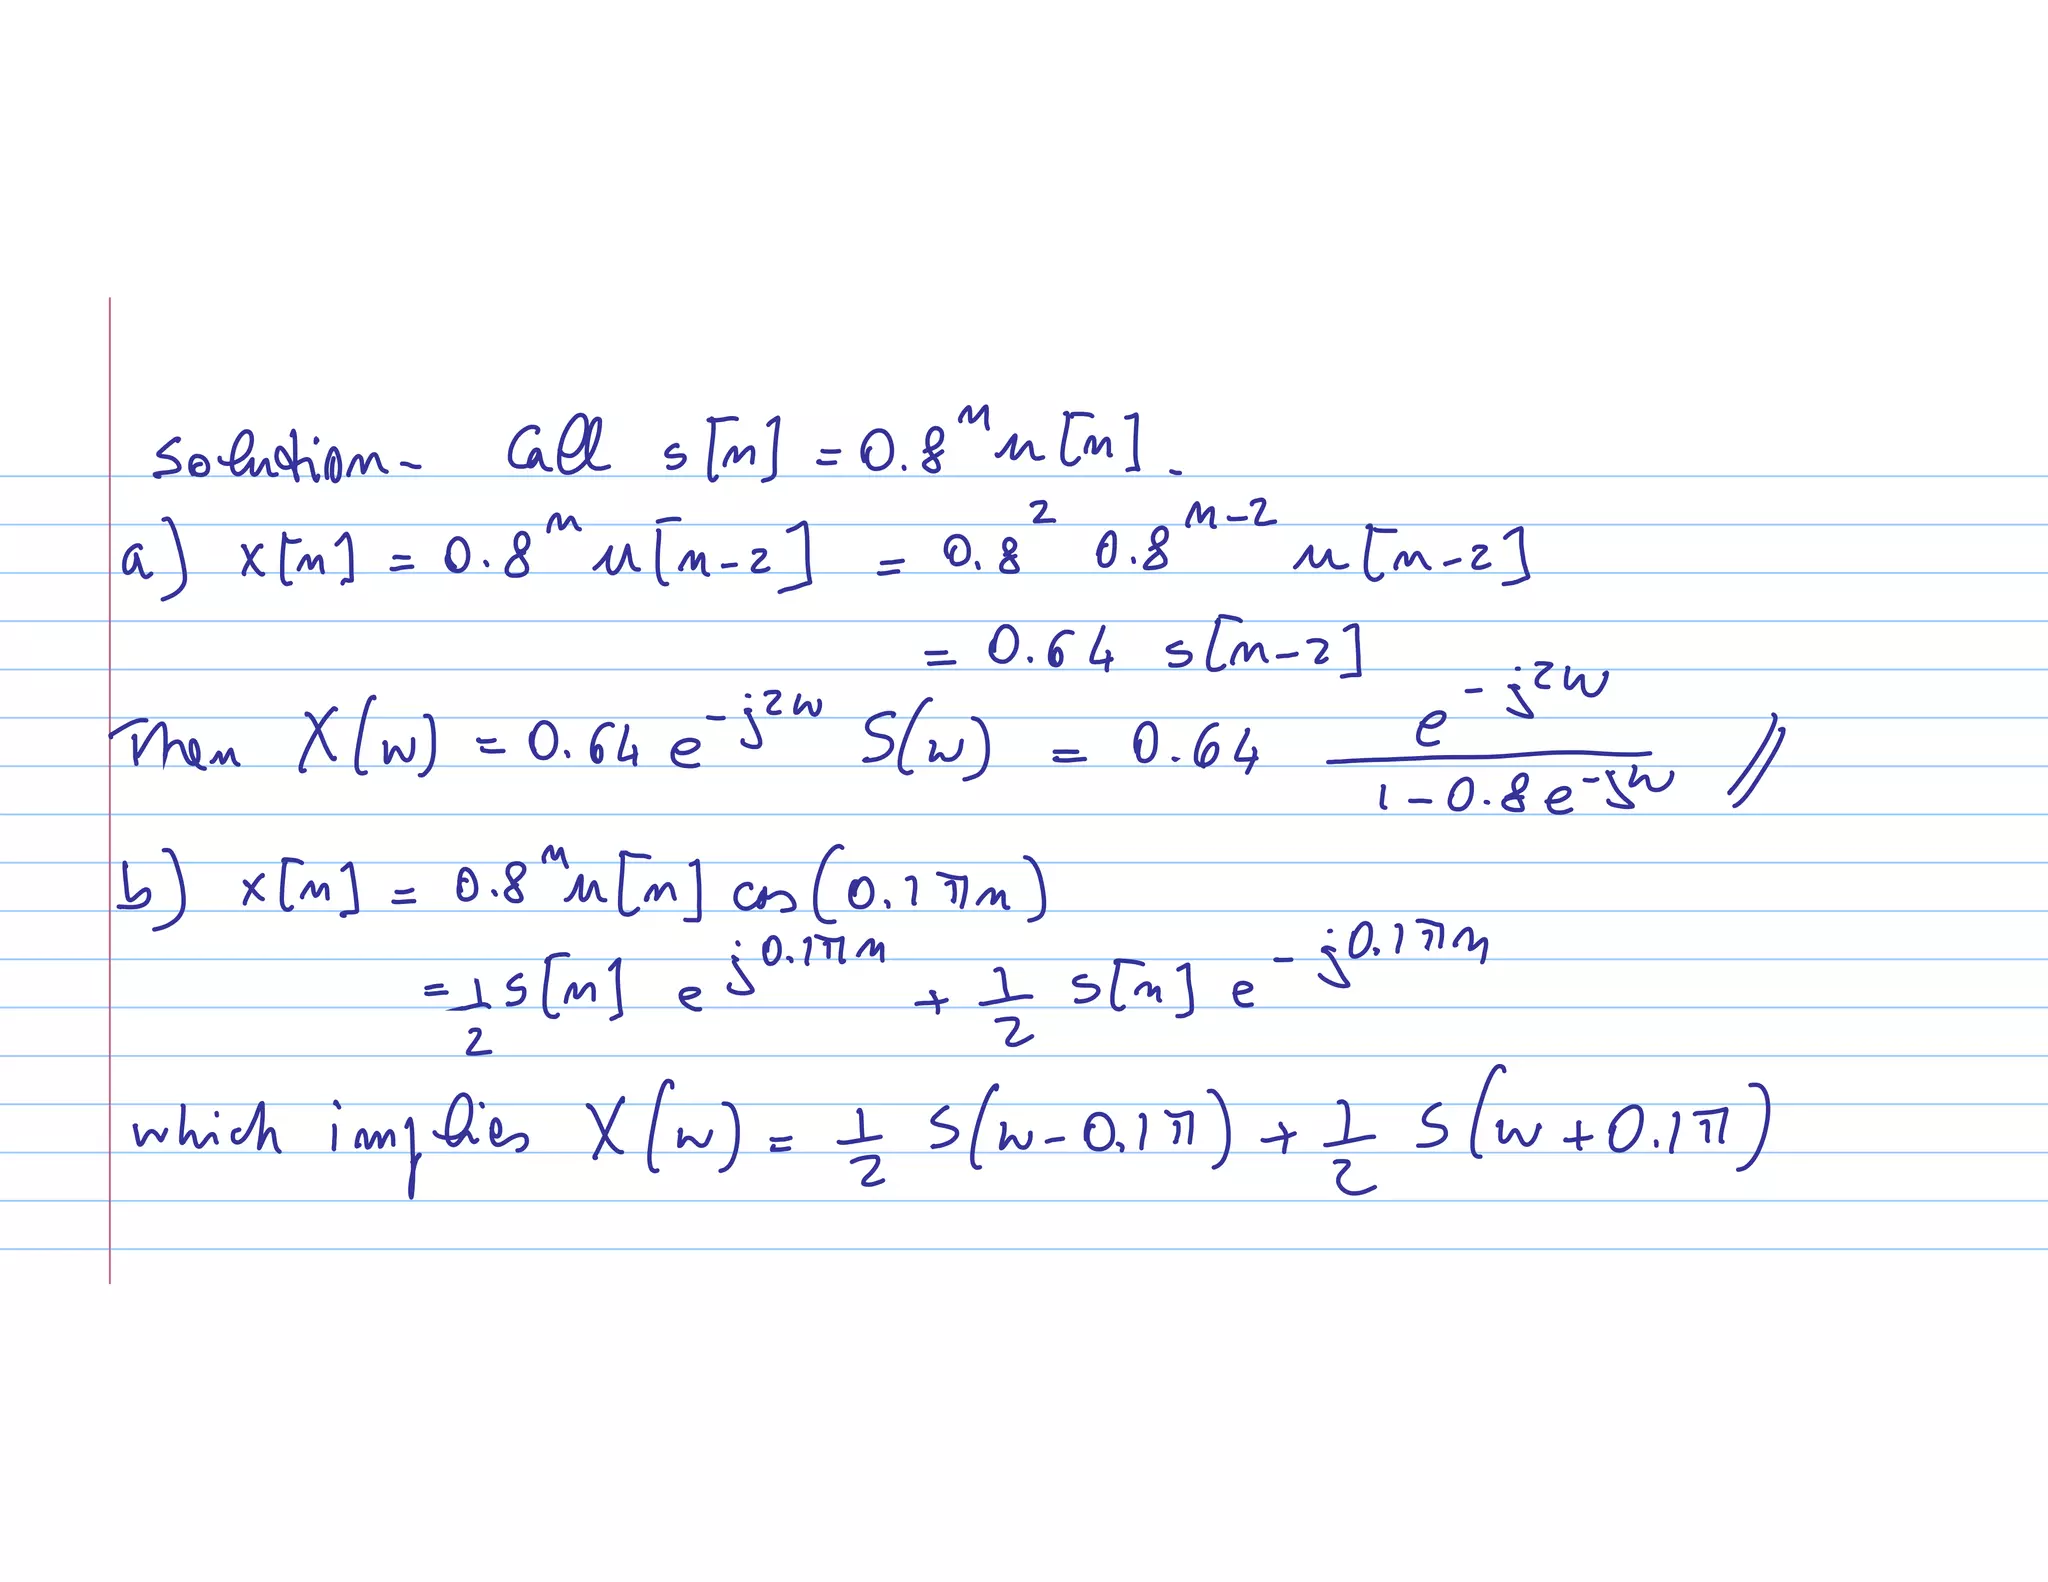 Solution- Call s[n] = 0.8ⁿ u[n].
a) x[n] = 0.8ⁿ u[n-2] = 0.8² 0.8ⁿ⁻² u[n-2]
= 0.64 s[n-2]
Then X(ω) = 0.64 e^{-j2ω} S(ω) = 0.64 \frac{e^{-j2ω}}{1-0.8e^{-jω}} //
b) x[n] = 0.8ⁿ u[n] cos(0.1πn)
= \frac{1}{2} s[n] e^{j0.1πn} + \frac{1}{2} s[n] e^{-j0.1πn}
which implies X(ω) = \frac{1}{2} S(ω-0.1π) + \frac{1}{2} S(ω+0.1π)